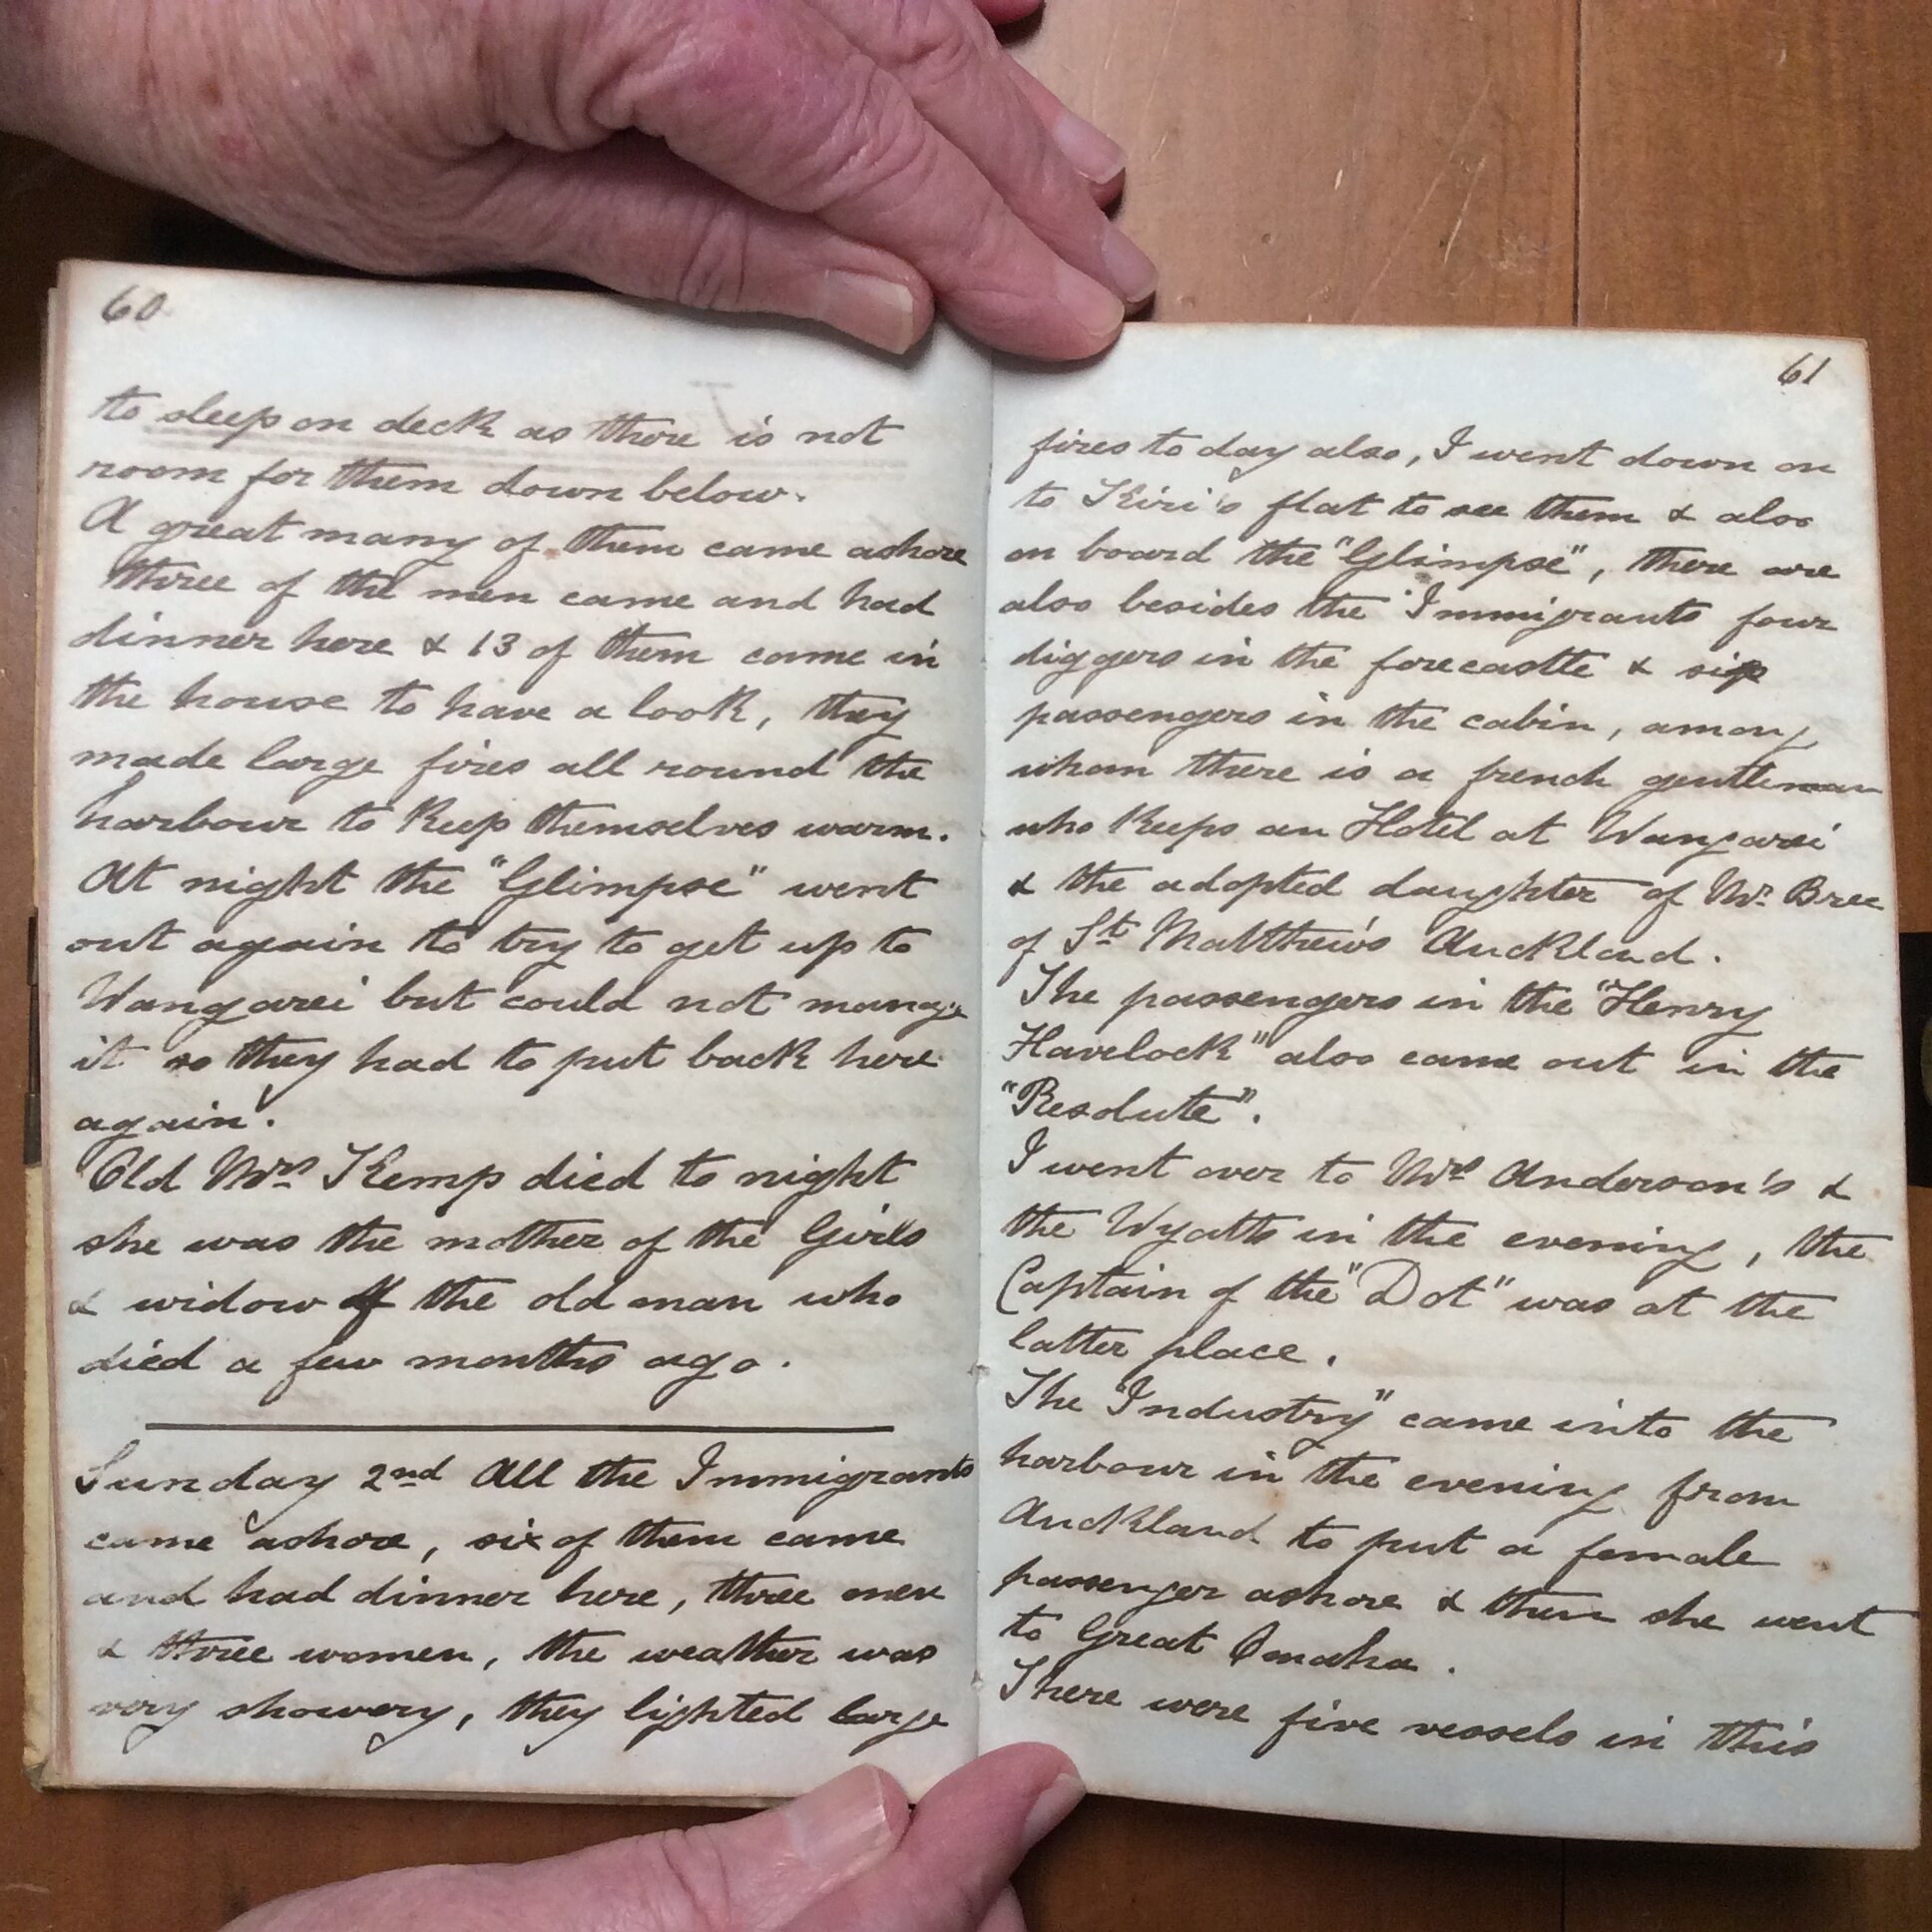 60
to sleep on deck as there is not
room for them down below.
A great many of them came ashore
three of the men came and had
dinner here & 13 of them came in
the house to have a look, they
made large fires all round the
harbour to keep themselves warm.
At night the "Glimpse" went
out again to try to get up to
Wangarei but could not manage
it so they had to put back here
again.
Old Mrs Kemp died to night
she was the mother of the Girls
& widow of the old man who
died a few months ago.
Sunday 2nd All the Immigrants
came ashore, six of them came
and had dinner here, three men
& three women, the weather was
very showery, they lighted large
61
fires to day also, I went down on
to Kiri's flat to see them & also
on board the "Glimpse", there are
also besides the Immigrants four
diggers in the forecastle & six
passengers in the cabin, among
whom there is a french gentleman
who keeps an Hotel at Wangarei
& the adopted daughter of Mr. Bree
of St Matthew's Auckland.
The passengers in the "Henry
Havelock" also came out in the
"Resolute".
I went over to Mrs Anderson's &
the Wyatts in the evening, the
Captain of the "Dot" was at the
latter place.
The "Industry" came into the
harbour in the evening from
Auckland to put a female
passenger ashore & then she went
to Great Omaha.
There were five vessels in this